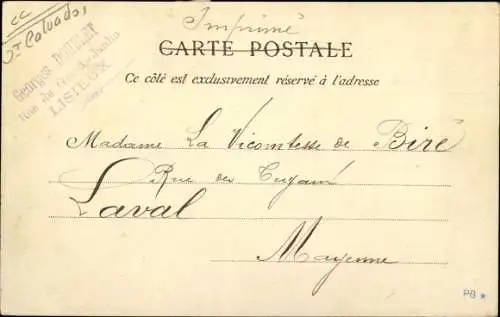 cc
Dt Calvados
Imprimé
Georges
Rue du
LISIEUX
CARTE POSTALE
Ce côté est exclusivement réservé à l'adresse
Madame La Vicomtesse de Biré
Rue des
Laval
Mayenne
PB *